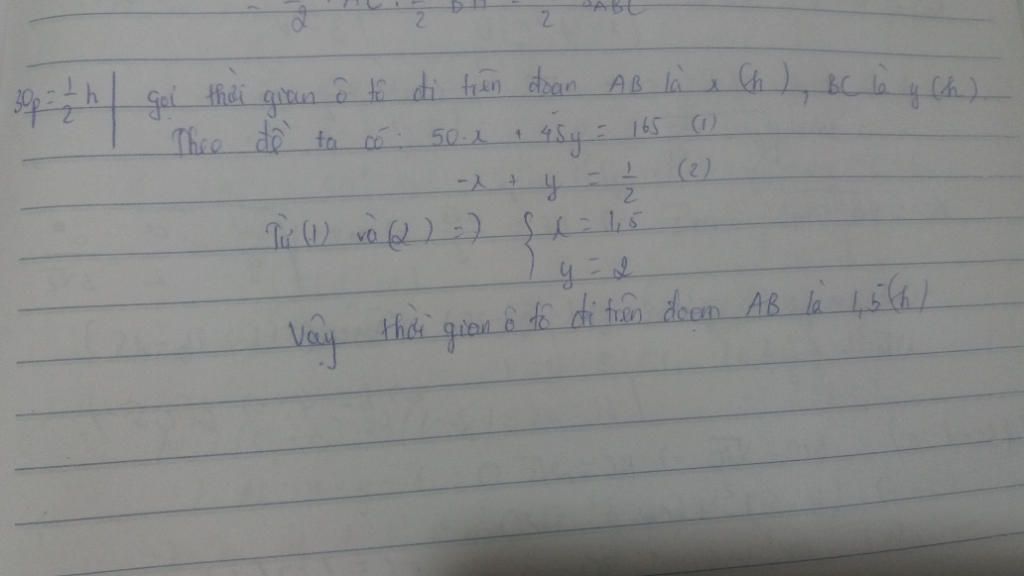 2 2 2
30p = 1/2 h | gọi thời gian ô tô đi trên đoạn AB là x (h), BC là y (h)
Theo đề ta có: 50.x + 45y = 165 (1)
-x + y = 1/2 (2)
Từ (1) và (2) => { x = 1,5
y = 2
Vậy thời gian ô tô đi trên đoạn AB là 1,5 (h)